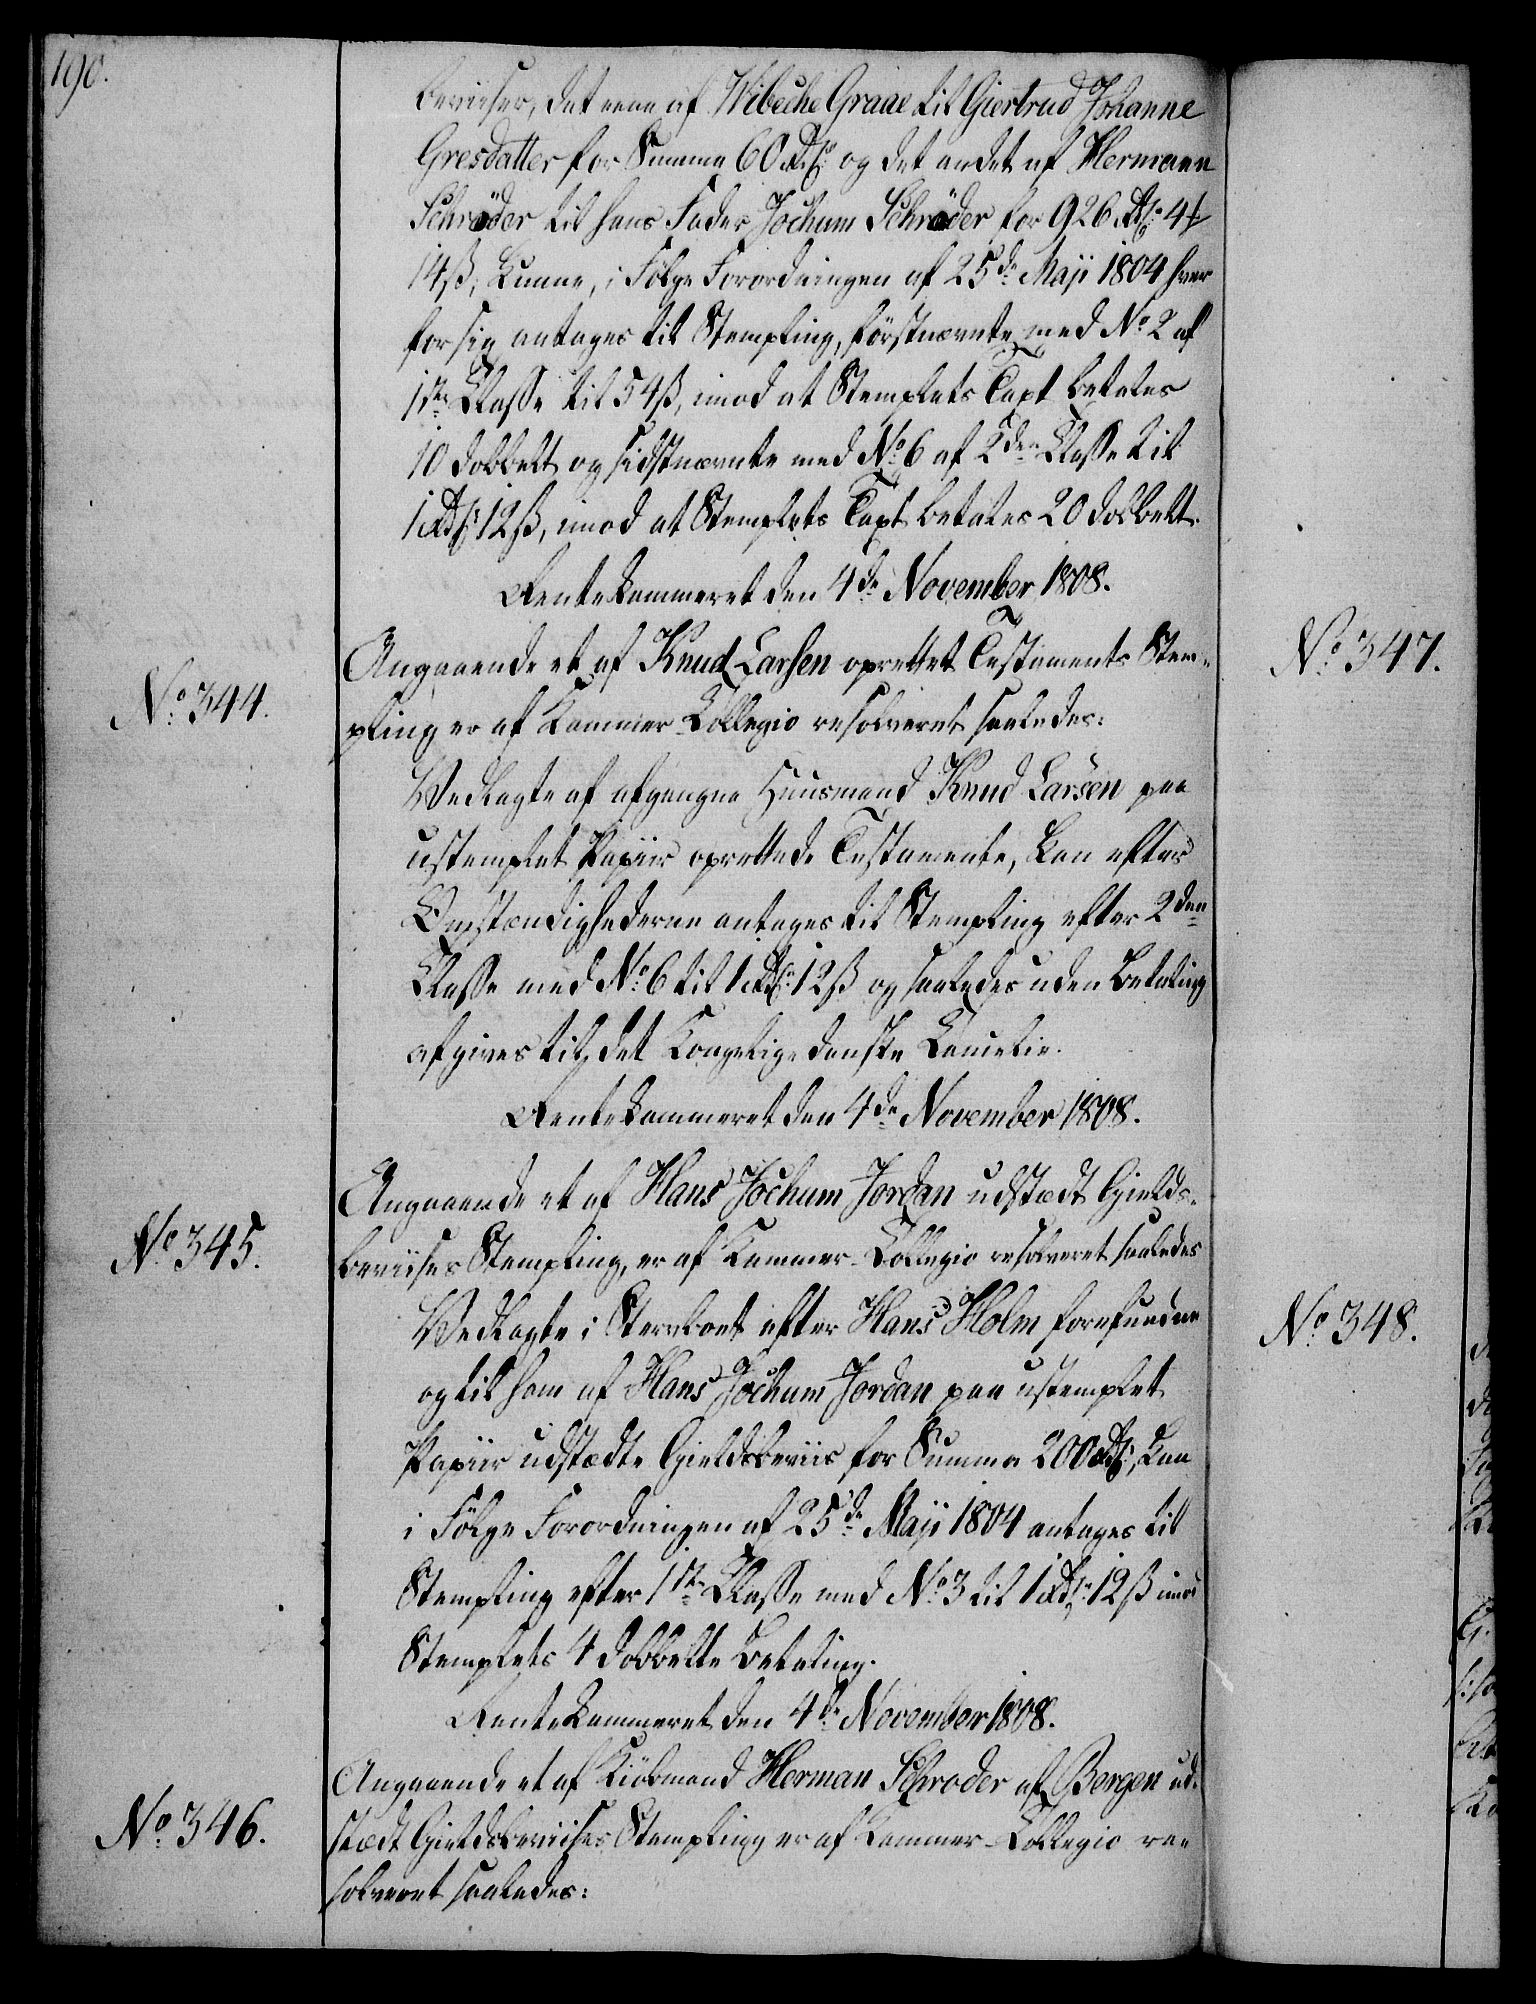 190.
beviiser, det eene af Wibeche Graae til Giertrud Johanne
Gresdatter for Summa 60 Rd. og det andet af Hermann
Schrøder til hans Fader Jochum Schrøder for 926 Rd. 4 ℔
14 ß, kunne, i Følge Forordningen af 25de Maji 1804 hver
for sig antages til Stempling,førstnævnte med No 2 af
1ste Classe til 54 ß, imod at Stemplets Taxt betales
10 dobbelt og sidstnævnte med No 6 af 2den Classe til
1 Rd. 12 ß, imod at Stemplets Taxt betales 20 dobbelt.
Rentekammeret den 4de November 1808.
No 344.
Angaaende et af Knud Larsen oprettet Testaments Stem-
pling er af Kammer-Collegio resolveret saaledes:
Vedlagte af afgangne Huusmand Knud Larsen paa
ustemplet Papiir oprettede Testamente, kan efter
Omstændighederne antages til Stempling efter 2den
Classe med No 6 til 1 Rd. 12 ß og saaledes uden Betaling
afgives til det Kongelige danske Cancelie.
Rentekammeret den 4de November 1808.
No 345.
Angaaende et af Hans Jochum Jordan udstædt Gields-
beviises Stempling, er af Kammer-Collegio resolveret saaledes
Vedlagte i Sterboet efter Hans Holm forefundne
og til ham af Hans Jochum Jordan paa ustemplet
Papiir udstædte Gieldsbeviis for Summa 200 Rd., kan
i Følge Forordningen af 25de Maji 1804 antages til
Stempling efter 1ste Classe med No 3 til 1 Rd. 12 ß imod
Stemplets 4 dobbelte Betaling.
Rentekammeret den 4de November 1808.
No 346.
Angaaende et af Kiøbmand Herman Schroder af Bergen ud-
stædt Gieldsbeviises Stempling er af Kammer-Collegio re-
solveret saaledes:
No 347.
No 348.